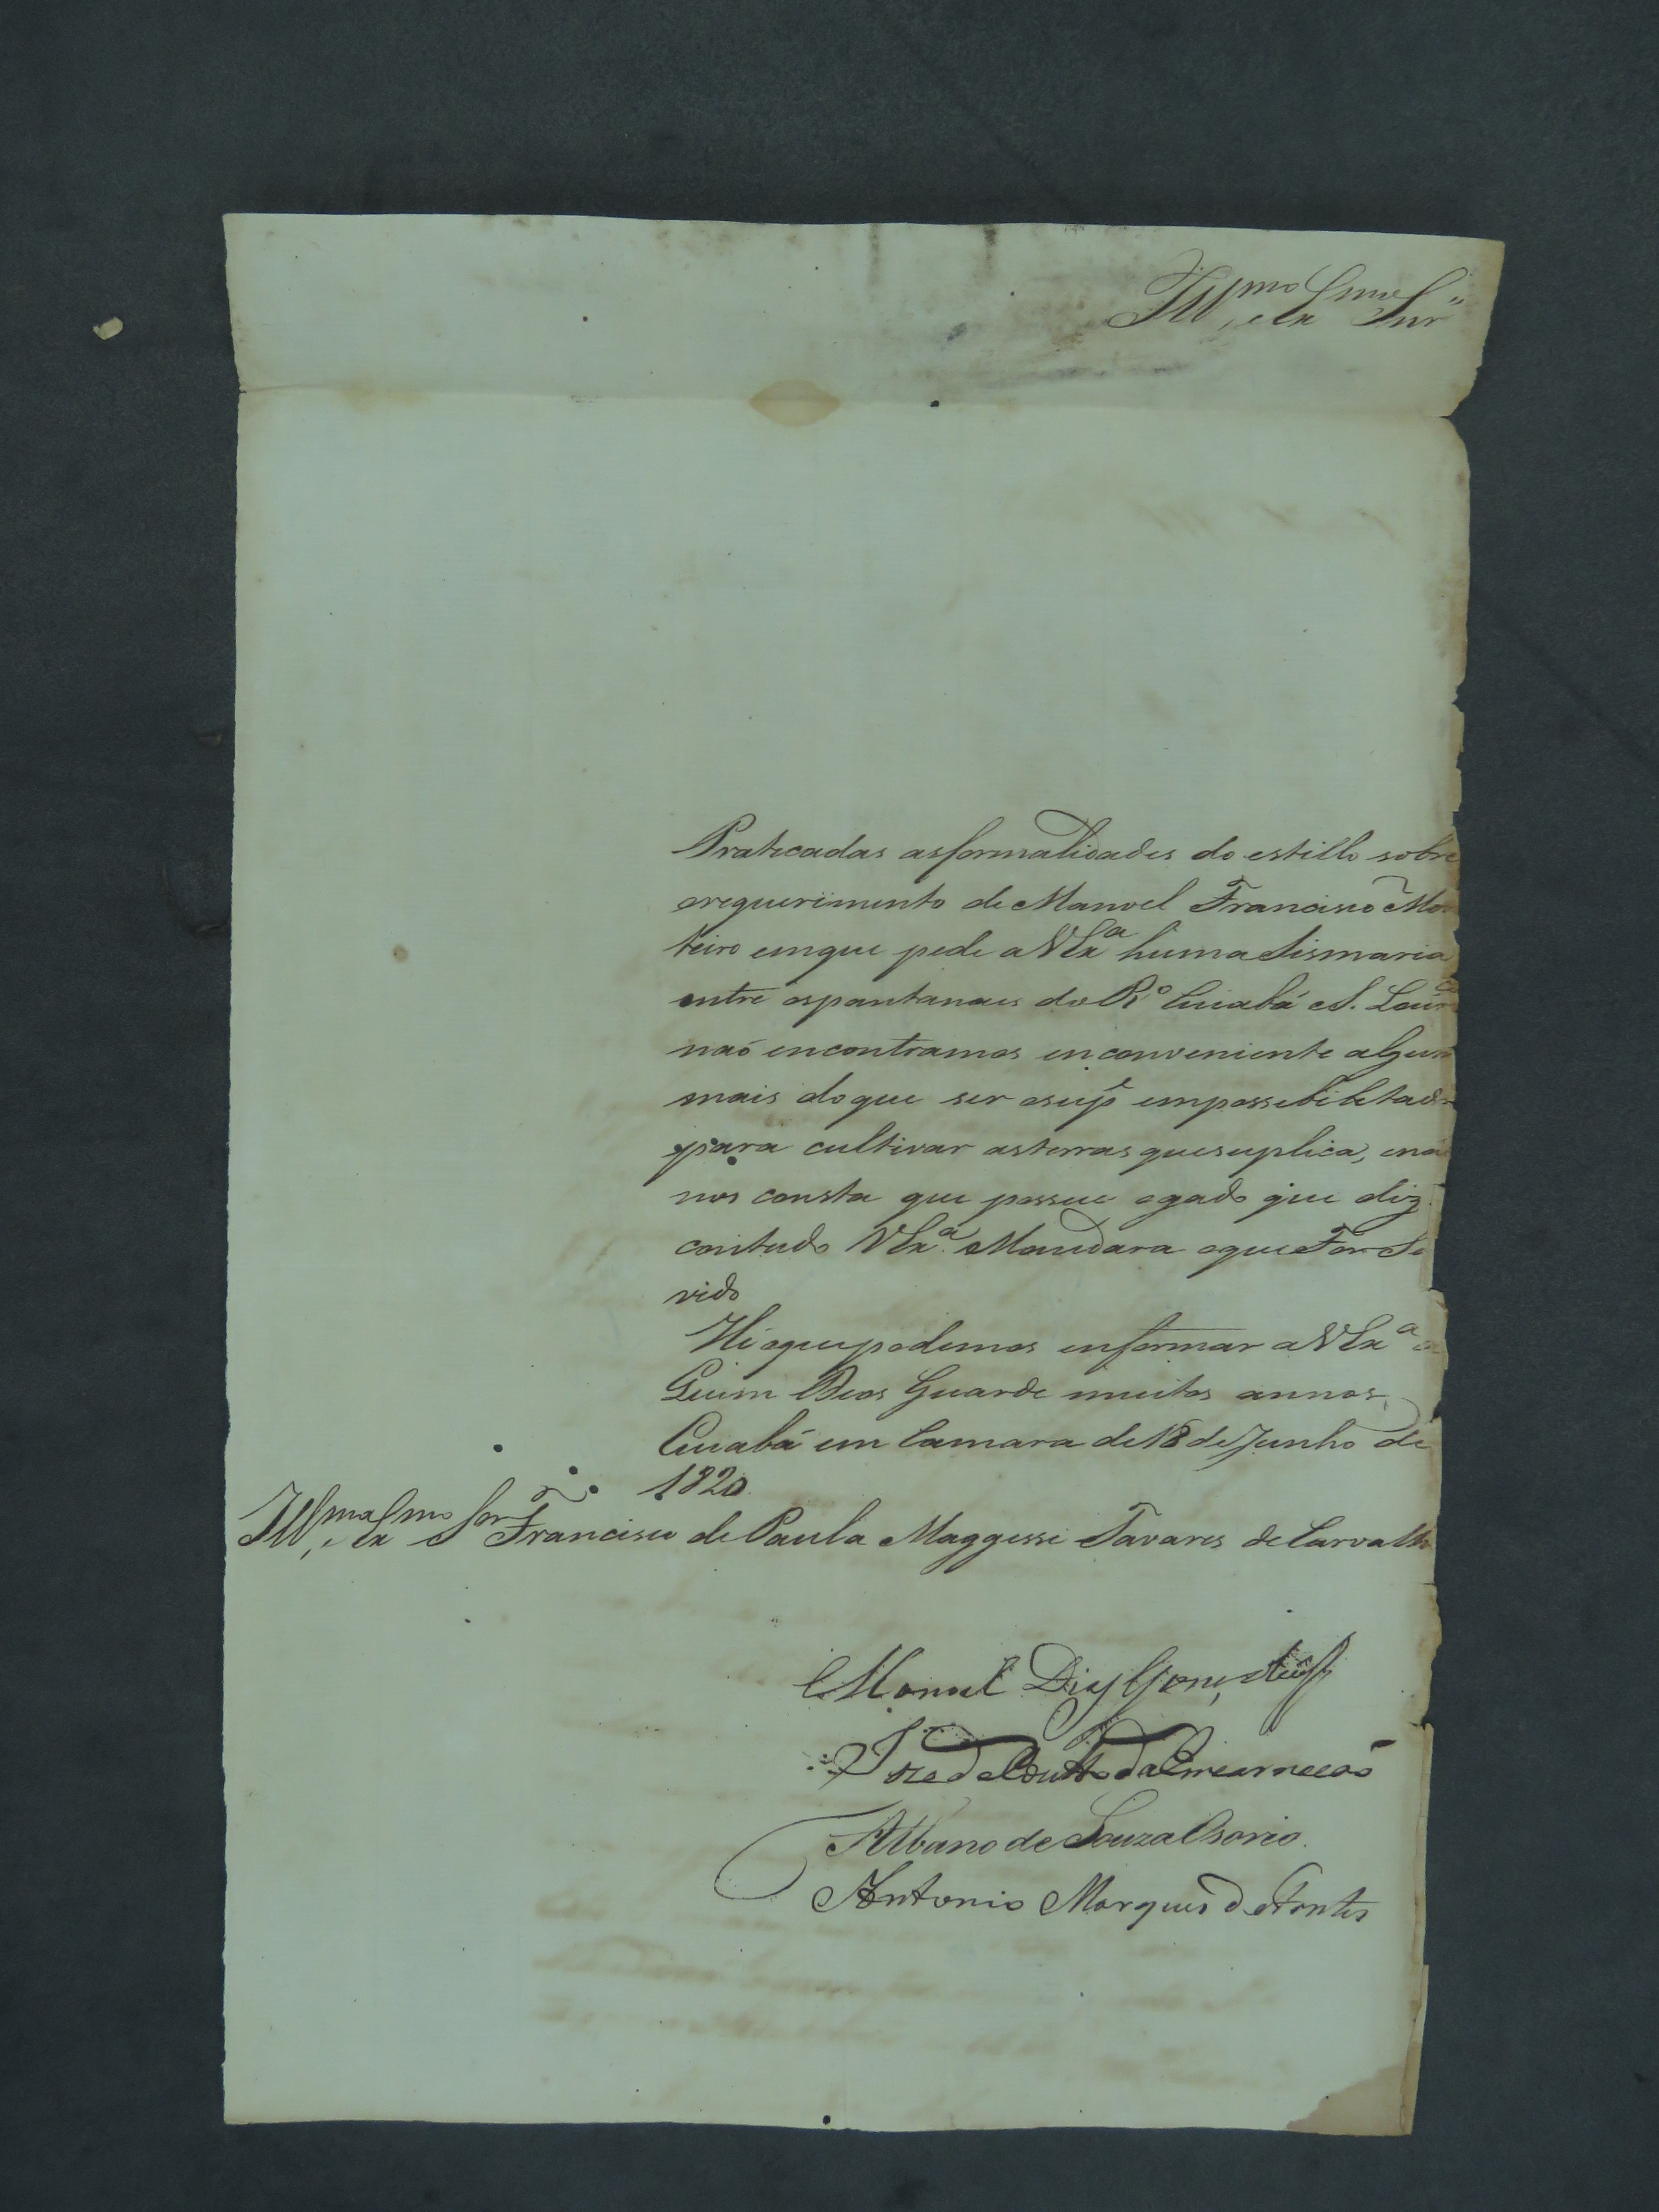 Ill.mo e Ex.mo Snr.
Praticadas as formalidades do estillo sobre
orequerimento de Manoel Francisco Mon
teiro emque pede a VEx.a huma Sismaria
entre ospantanaes do R.o Cuiabá e S. Lour.ço
naó encontramos inconveniente algum
mais doque ser osup.e impossebilitado
para cultivar asterras quesuplica, enaó
nos consta que possue ogado que diz
contudo VEx.a Mandara oque For Se
vido
Hé oquepodemos informar a VEx.a a
Quem Deos Guarde muitos annos.
Cuiabá em Camara de 18 de Junho de
1820.
Ill.mo e Ex.mo Snr. Francisco de Paula Maggessi Tavares de Carvalho
Manoel Dias
Joze de Couto da Encarnacaó
Albano de Souza Osorio.
Antonio Marques de Fontes